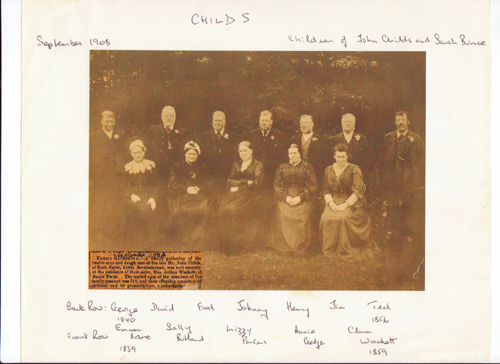 CHILDS
September 1908
Children of John Childs and Sarah Bunce
FAMILY GATHERING.—A family gathering of the
twelve sons and daughters of the late Mr. John Childs,
of Farm, Little Berkhamsted, was held recently
at the residence of their sister, Mrs. Arthur Wackett, of
Farm. The united ages of the members of the
family present was 710, and their offspring consists of
children and 99 grandchildren,
Back Row: George David Fred Johnny Henry Jim Ted
1840 1856
Emma Sally Lizzy Annie Clara
Front Row Kane Rutland Parsons Gedge Wackett
1839 1859